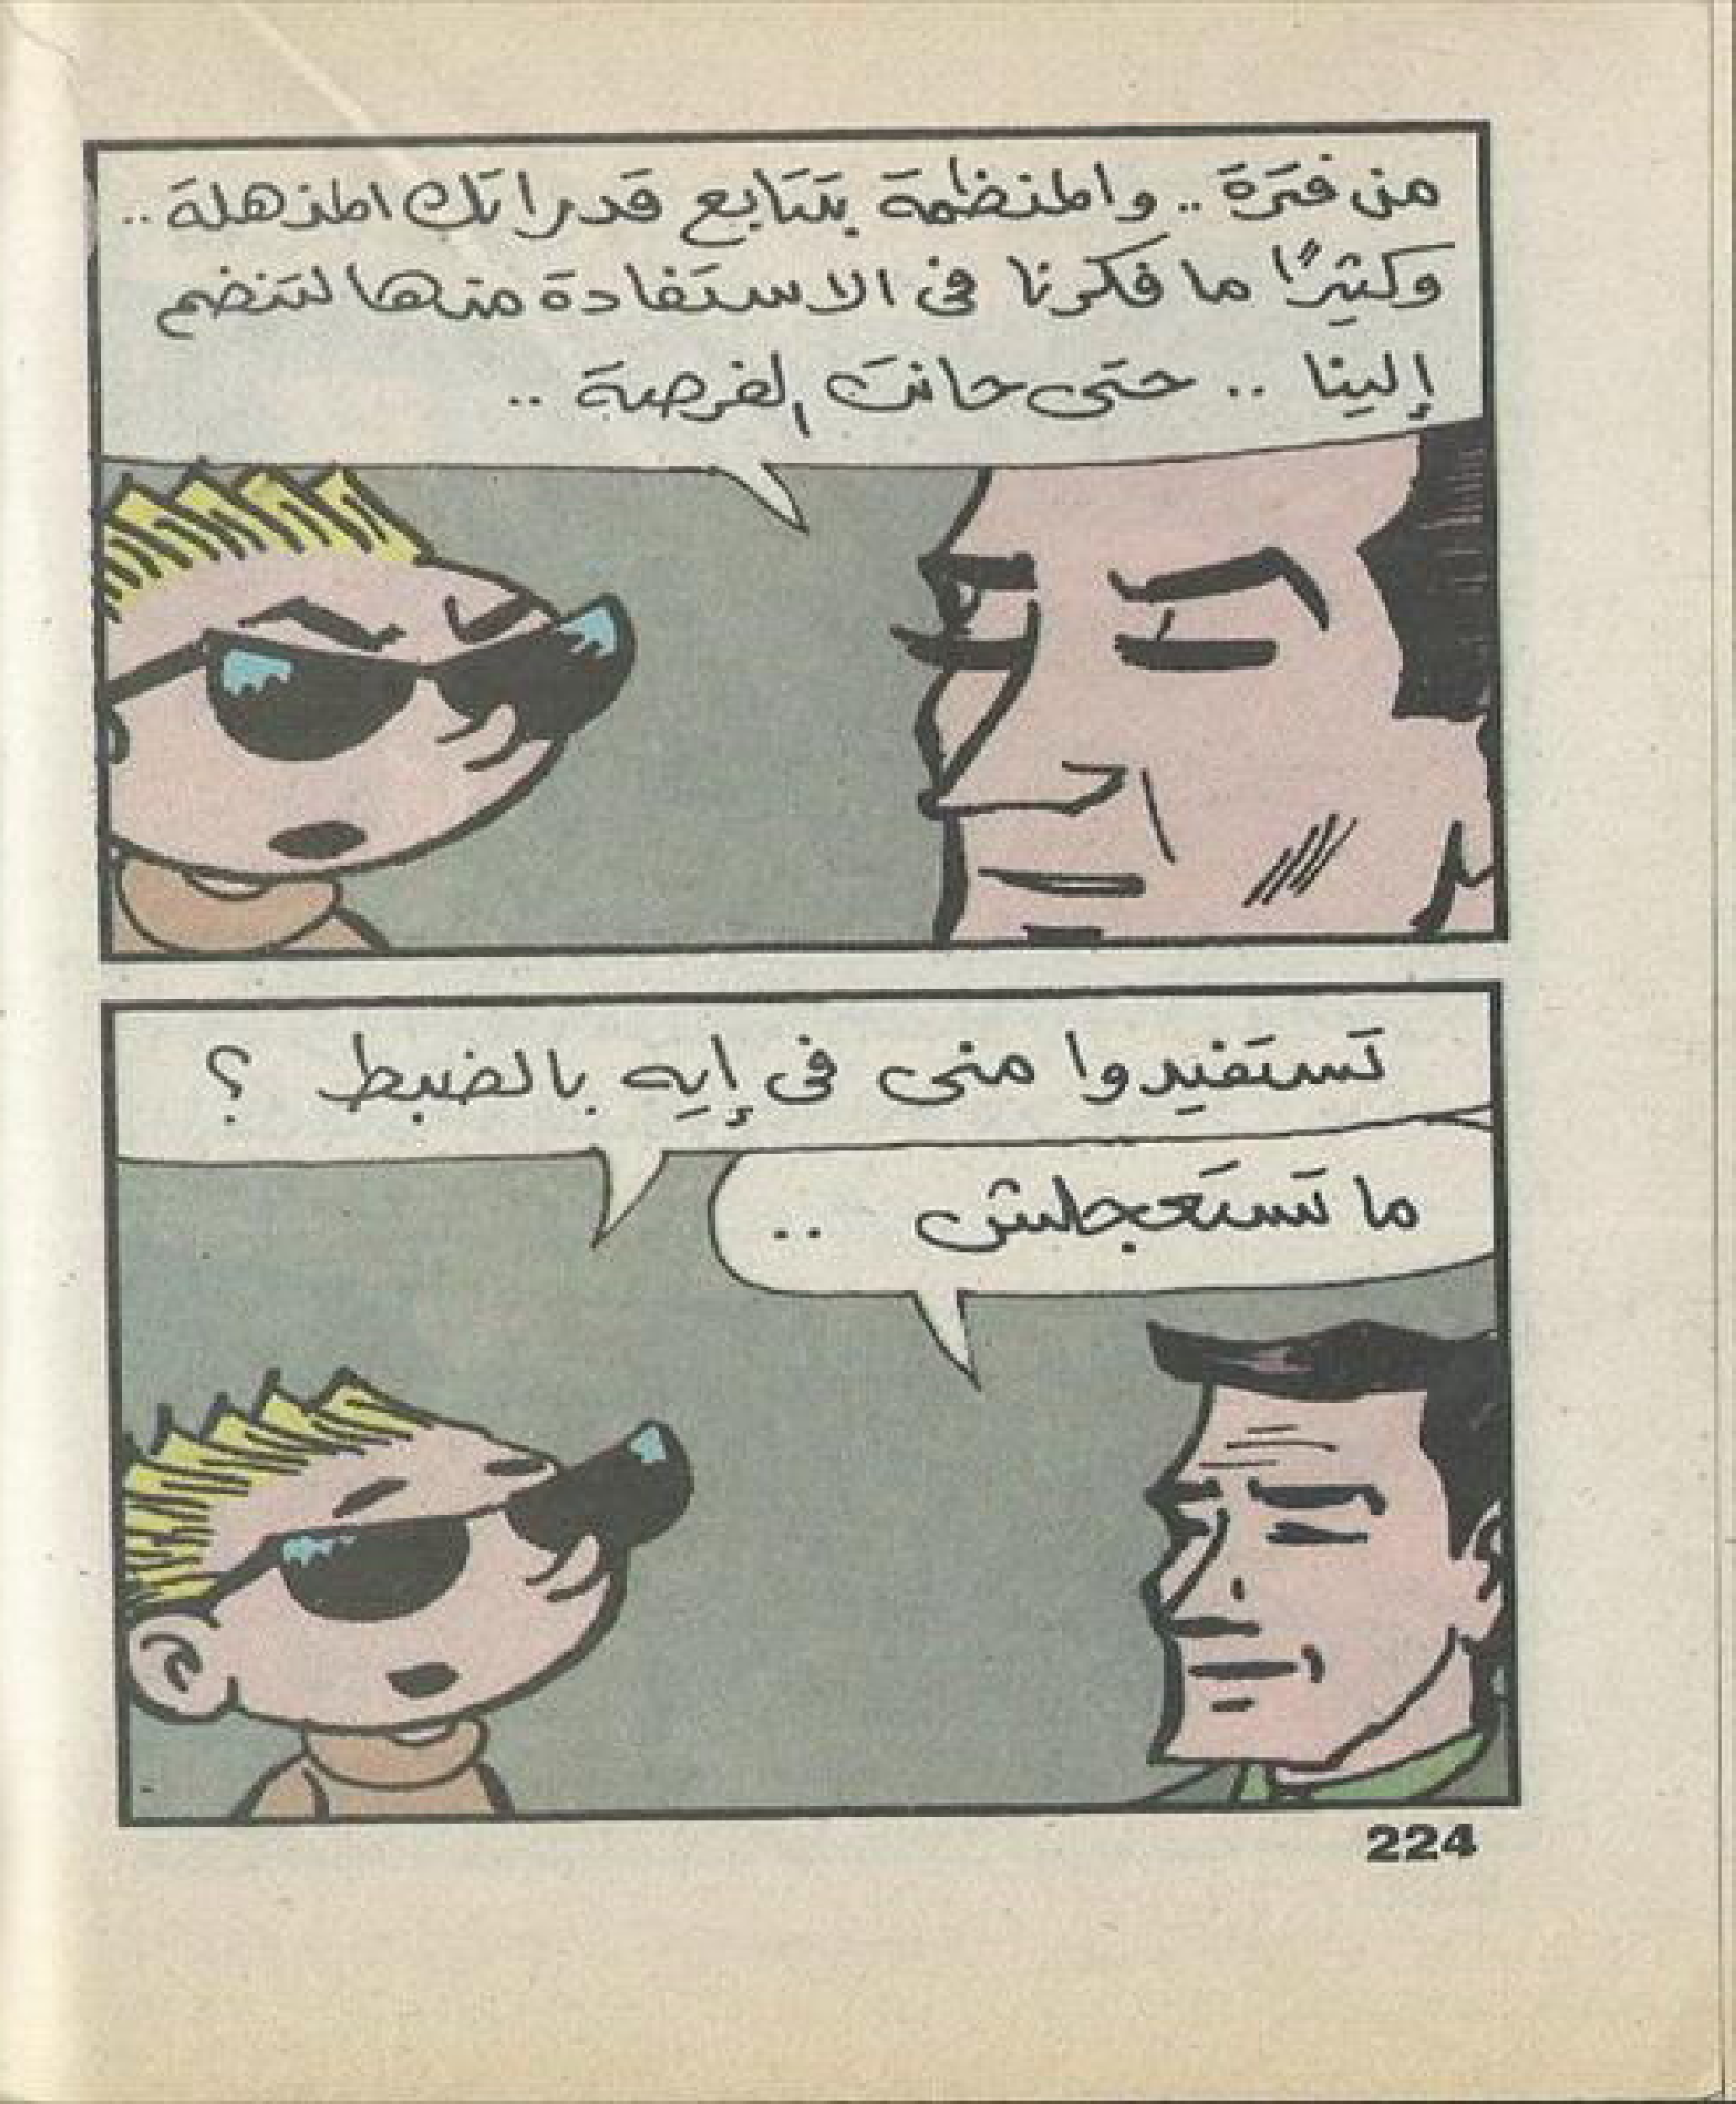 من فترة .. والمنظمة بتتابع قدراتك المذهلة ..
وكثيرًا ما فكرنا فى الاستفادة منها لتنضم
إلينا .. حتى حانت الفرصة ..
تستفيدوا منى فى إيه بالضبط ؟
ما تستعجلش ..
224